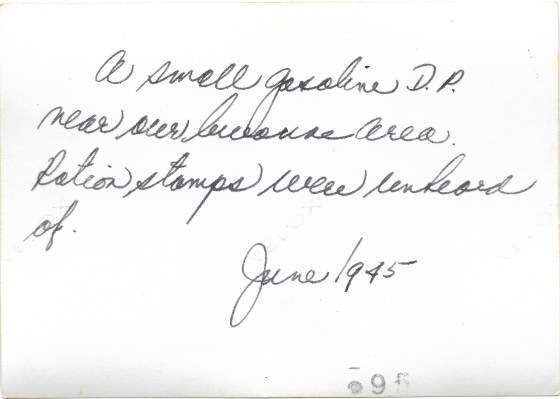 A small gasoline D.P.
near our bivouac area.
Ration stamps were unheard
of.
June 1945